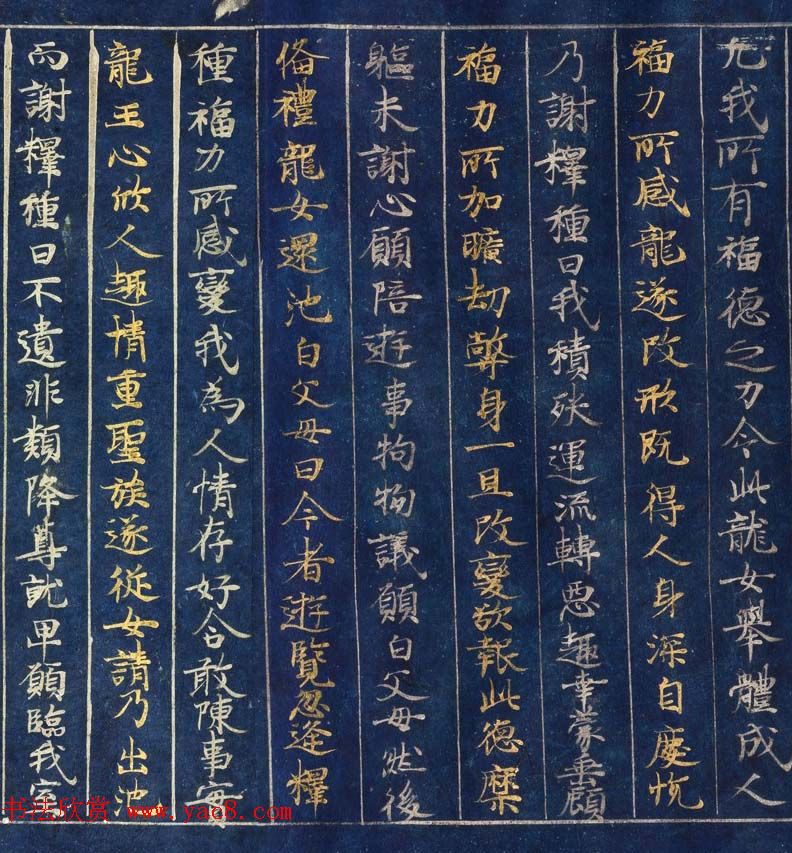 凡我所有福德之力令此龍女舉體成人
福力所感龍遂改形既得人身深自慶悅
乃謝釋種曰我積殃運流轉惡趣幸蒙垂顧
福力所加曠劫弊身一旦改變欲報此德糜
軀未謝心願陪遊事拘物議願白父母然後
俻禮龍女還池白父母曰今者遊覽忽逢釋
種福力所感變我為人情存好合敢陳事實
龍王心欣人趣情重聖族遂從女請乃出池
而謝釋種曰不遺非類降尊就卑願臨我室
书法欣赏 www.yac8.com